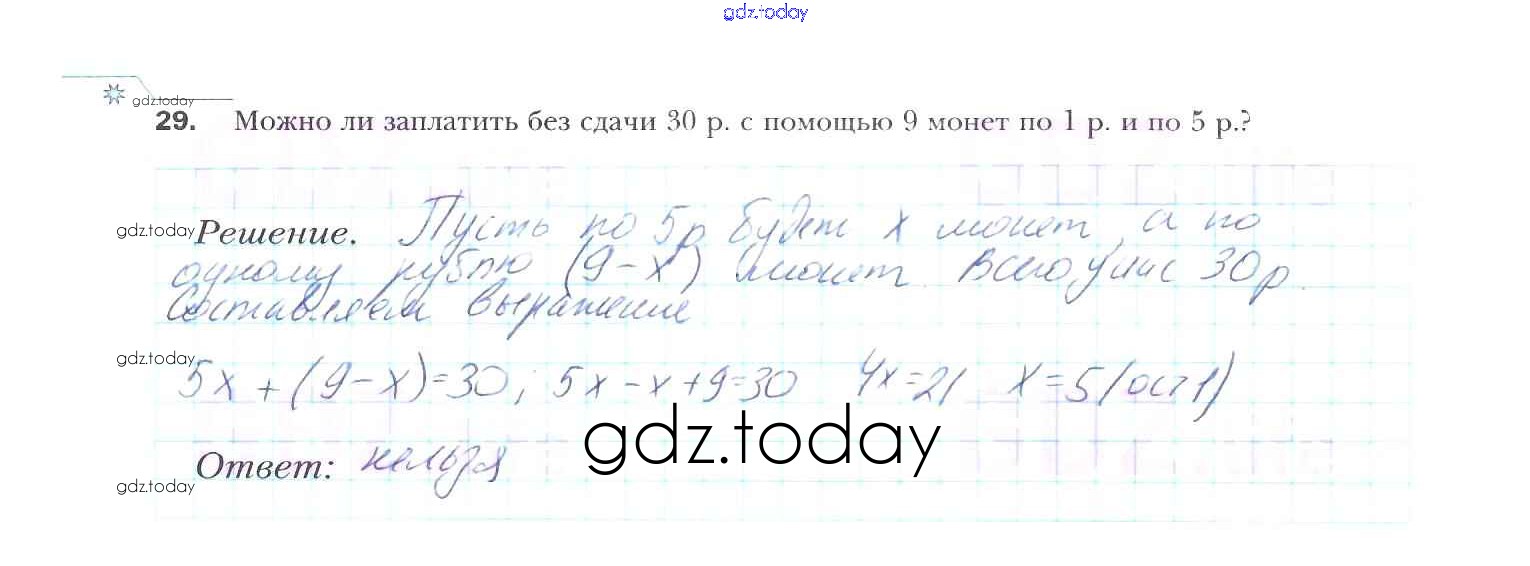 gdz.today
gdz.today
29. Можно ли заплатить без сдачи 30 р. с помощью 9 монет по 1 р. и по 5 р.?
gdz.today Решение. Пусть по 5р будет x монет, а по
одному рублю (9-x) монет. Всего у нас 30р.
Составляем выражение
gdz.today
5x + (9-x)=30; 5x-x+9=30 4x=21 x=5(ост1)
gdz.today
Ответ: нельзя
gdz.today